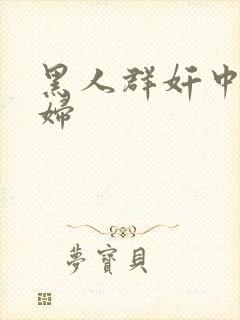 黑人群奸中
婦
夢寶貝